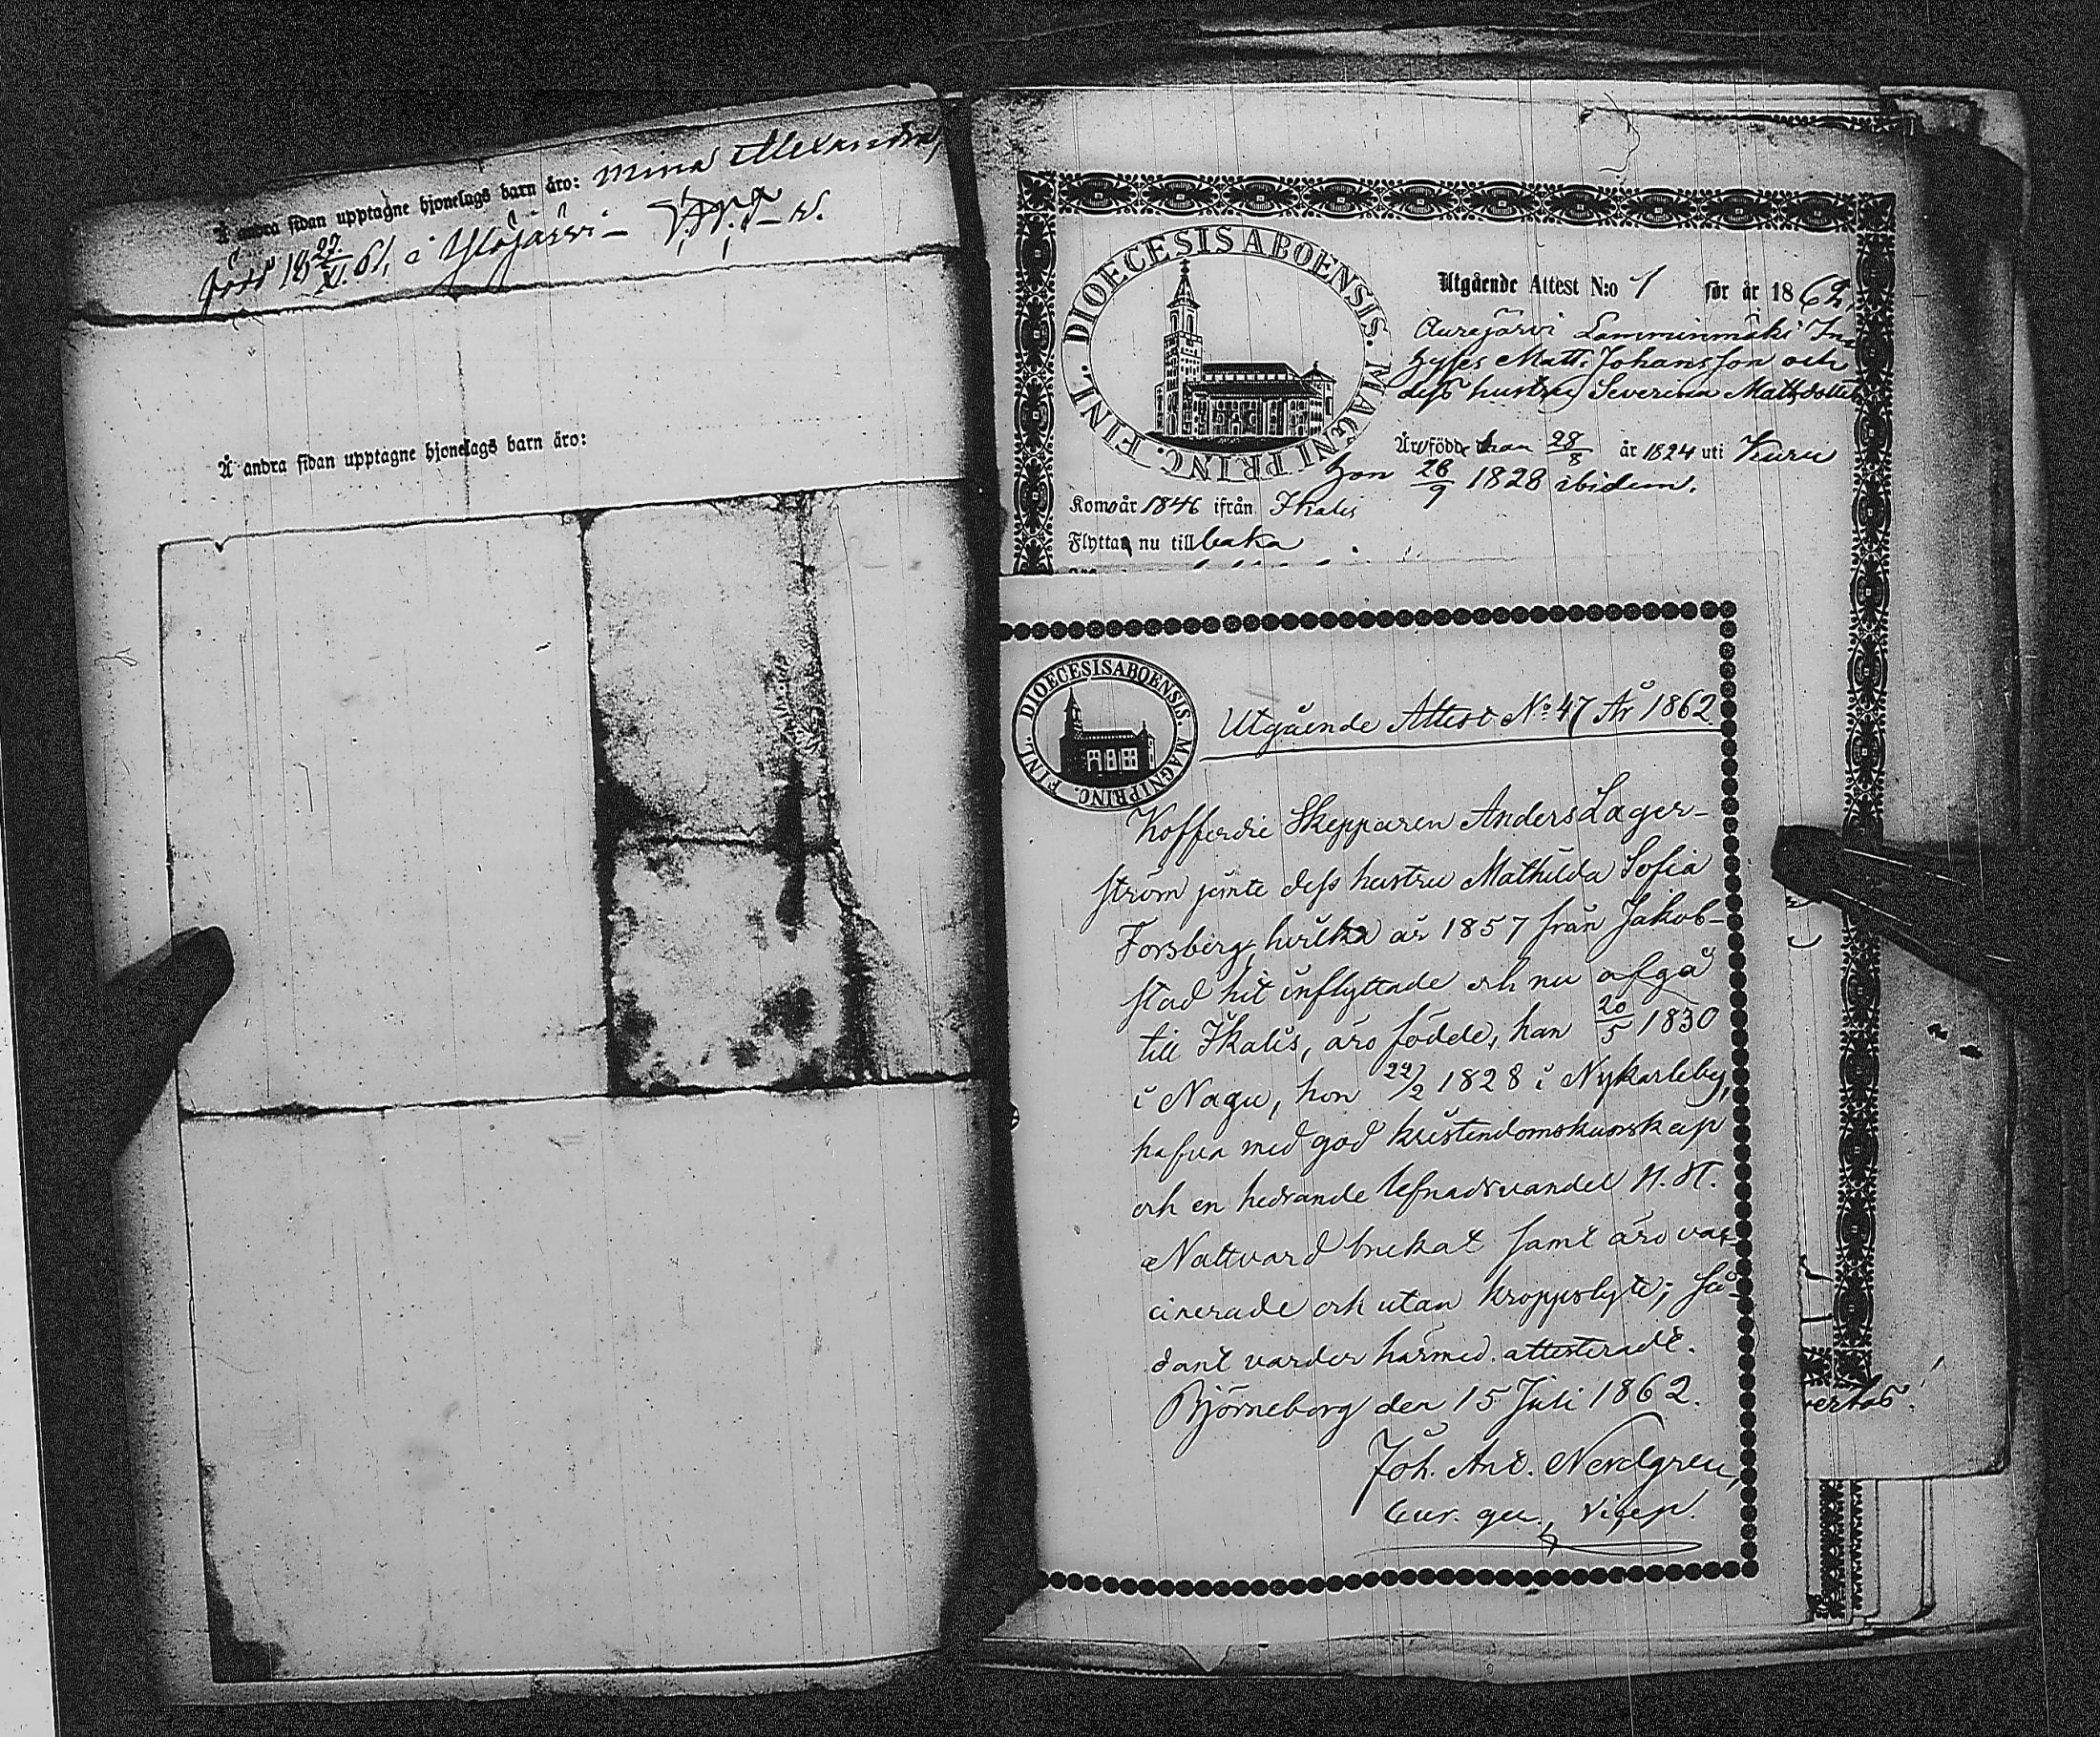 Å andra sidan upptagne hjonelags barn äro: Mina Alexandra,
född 18 27/XI. 61, i Ylöjärvi –
Å andra sidan upptagne hjonelags barn äro:
DIOECESIS ABOENSIS. MAGNI PRINC. FINL.
Utgående Attest N:o 1 för år 1862,
Aurejärvi Lamminmäki In-
hyses Matts Johansson och
dess hustru Severina Mattsdotter
Äro födde han 28/8 år 1824 uti Kuru
hon 28/9 1828 ibidem.
Komo år 1846 ifrån Ikalis
Flytta nu tillbaka
DIOECESIS ABOENSIS. MAGNI PRINC. FINL.
Utgående Attest No 47 År 1862
Kofferdie Skepparen Anders Lager-
ström jämte dess hustru Mathilda Sofia
Forsberg, hvilka år 1857 från Jakob-
stad hit inflyttade och nu afgå
till Ikalis, äro födde, han 20/5 1830
i Nagu, hon 22/2 1828 i Nykarleby,
hafva med god kristendomskunskap
och en hedrande lefnadsvandel H. H.
Nattvard brukat samt äro vac-
cinerade och utan kroppslyte; så-
dant varder härmed attesteradt.
Björneborg den 15 Juli 1862.
Joh. Ant. Nordgren,
Cur. gu., Vicep.